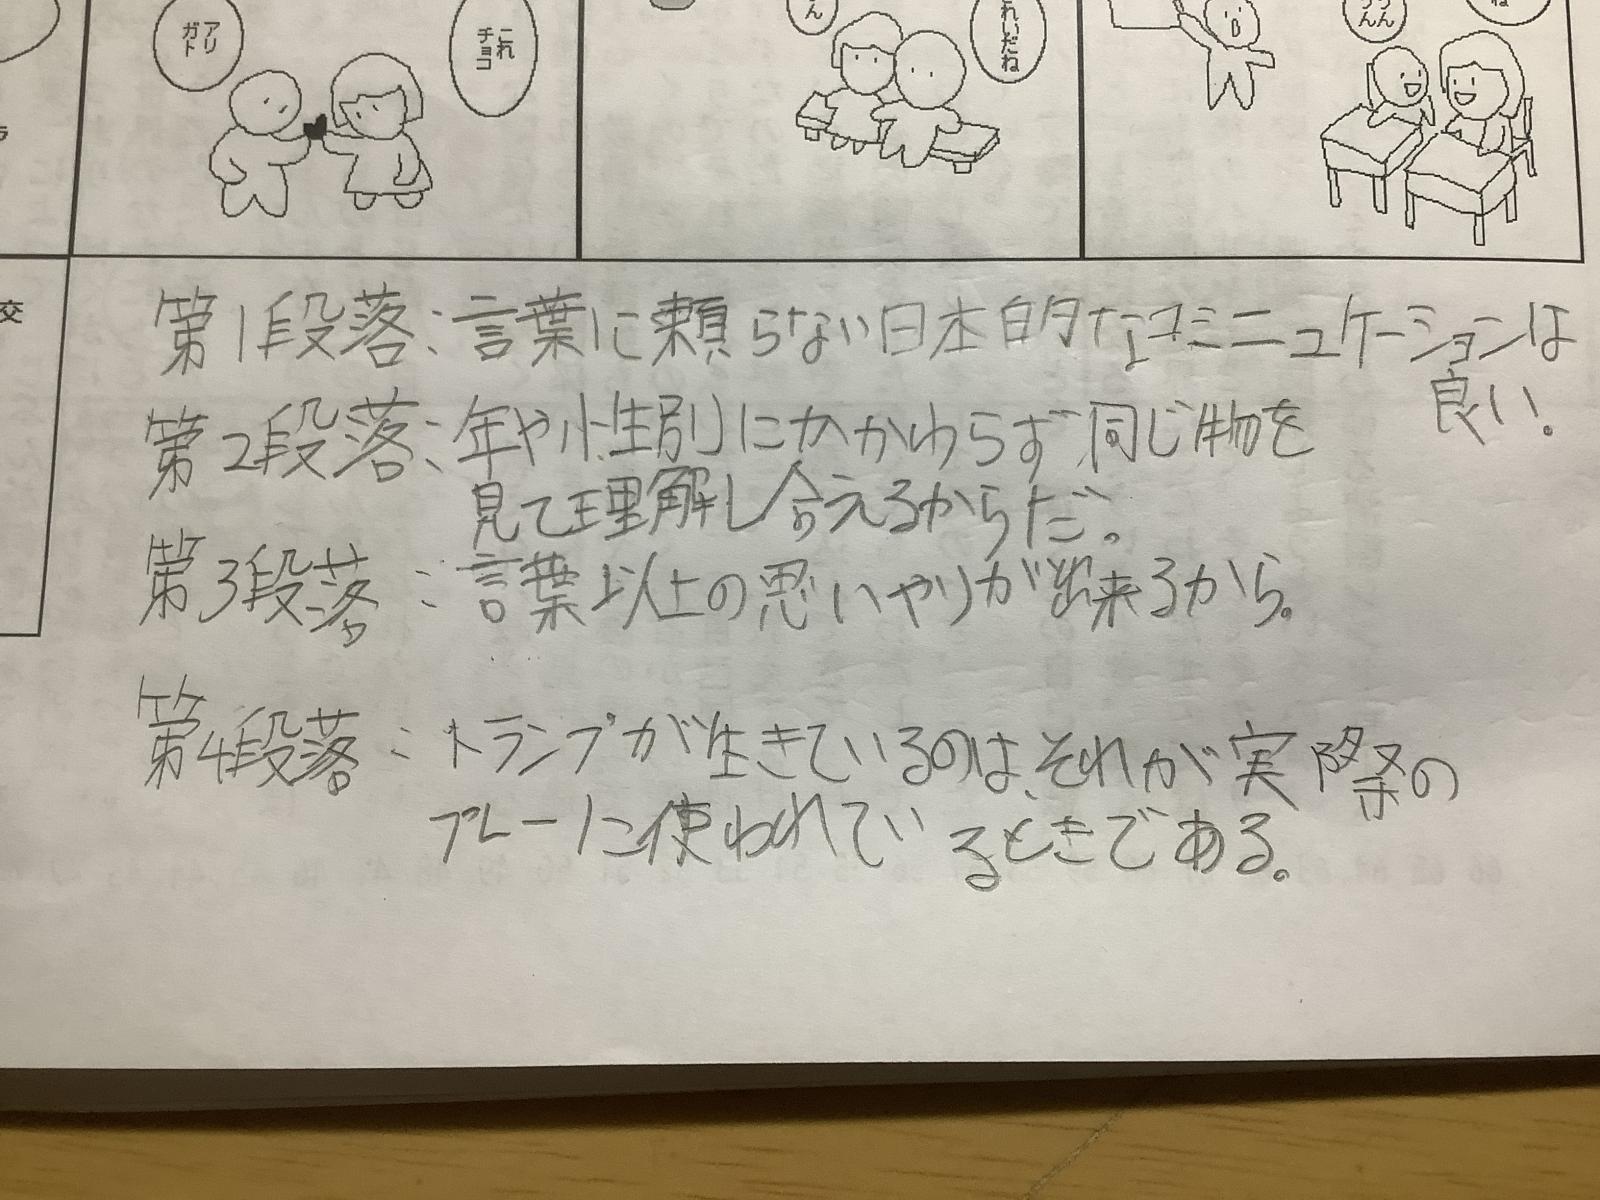 アリ
ガト
これ
チョコ
れいだね
ん
うん
うん
ね
交
第1段落:言葉に頼らない日本的なコミニュケーションは
良い.
第2段落:年や性別にかかわらず同じ物を
見て理解し合えるからだ。
第3段落:言葉以上の思いやりが出来るから。
第4段落:トランプが生きているのは、それが実際の
プレーに使われているときである。